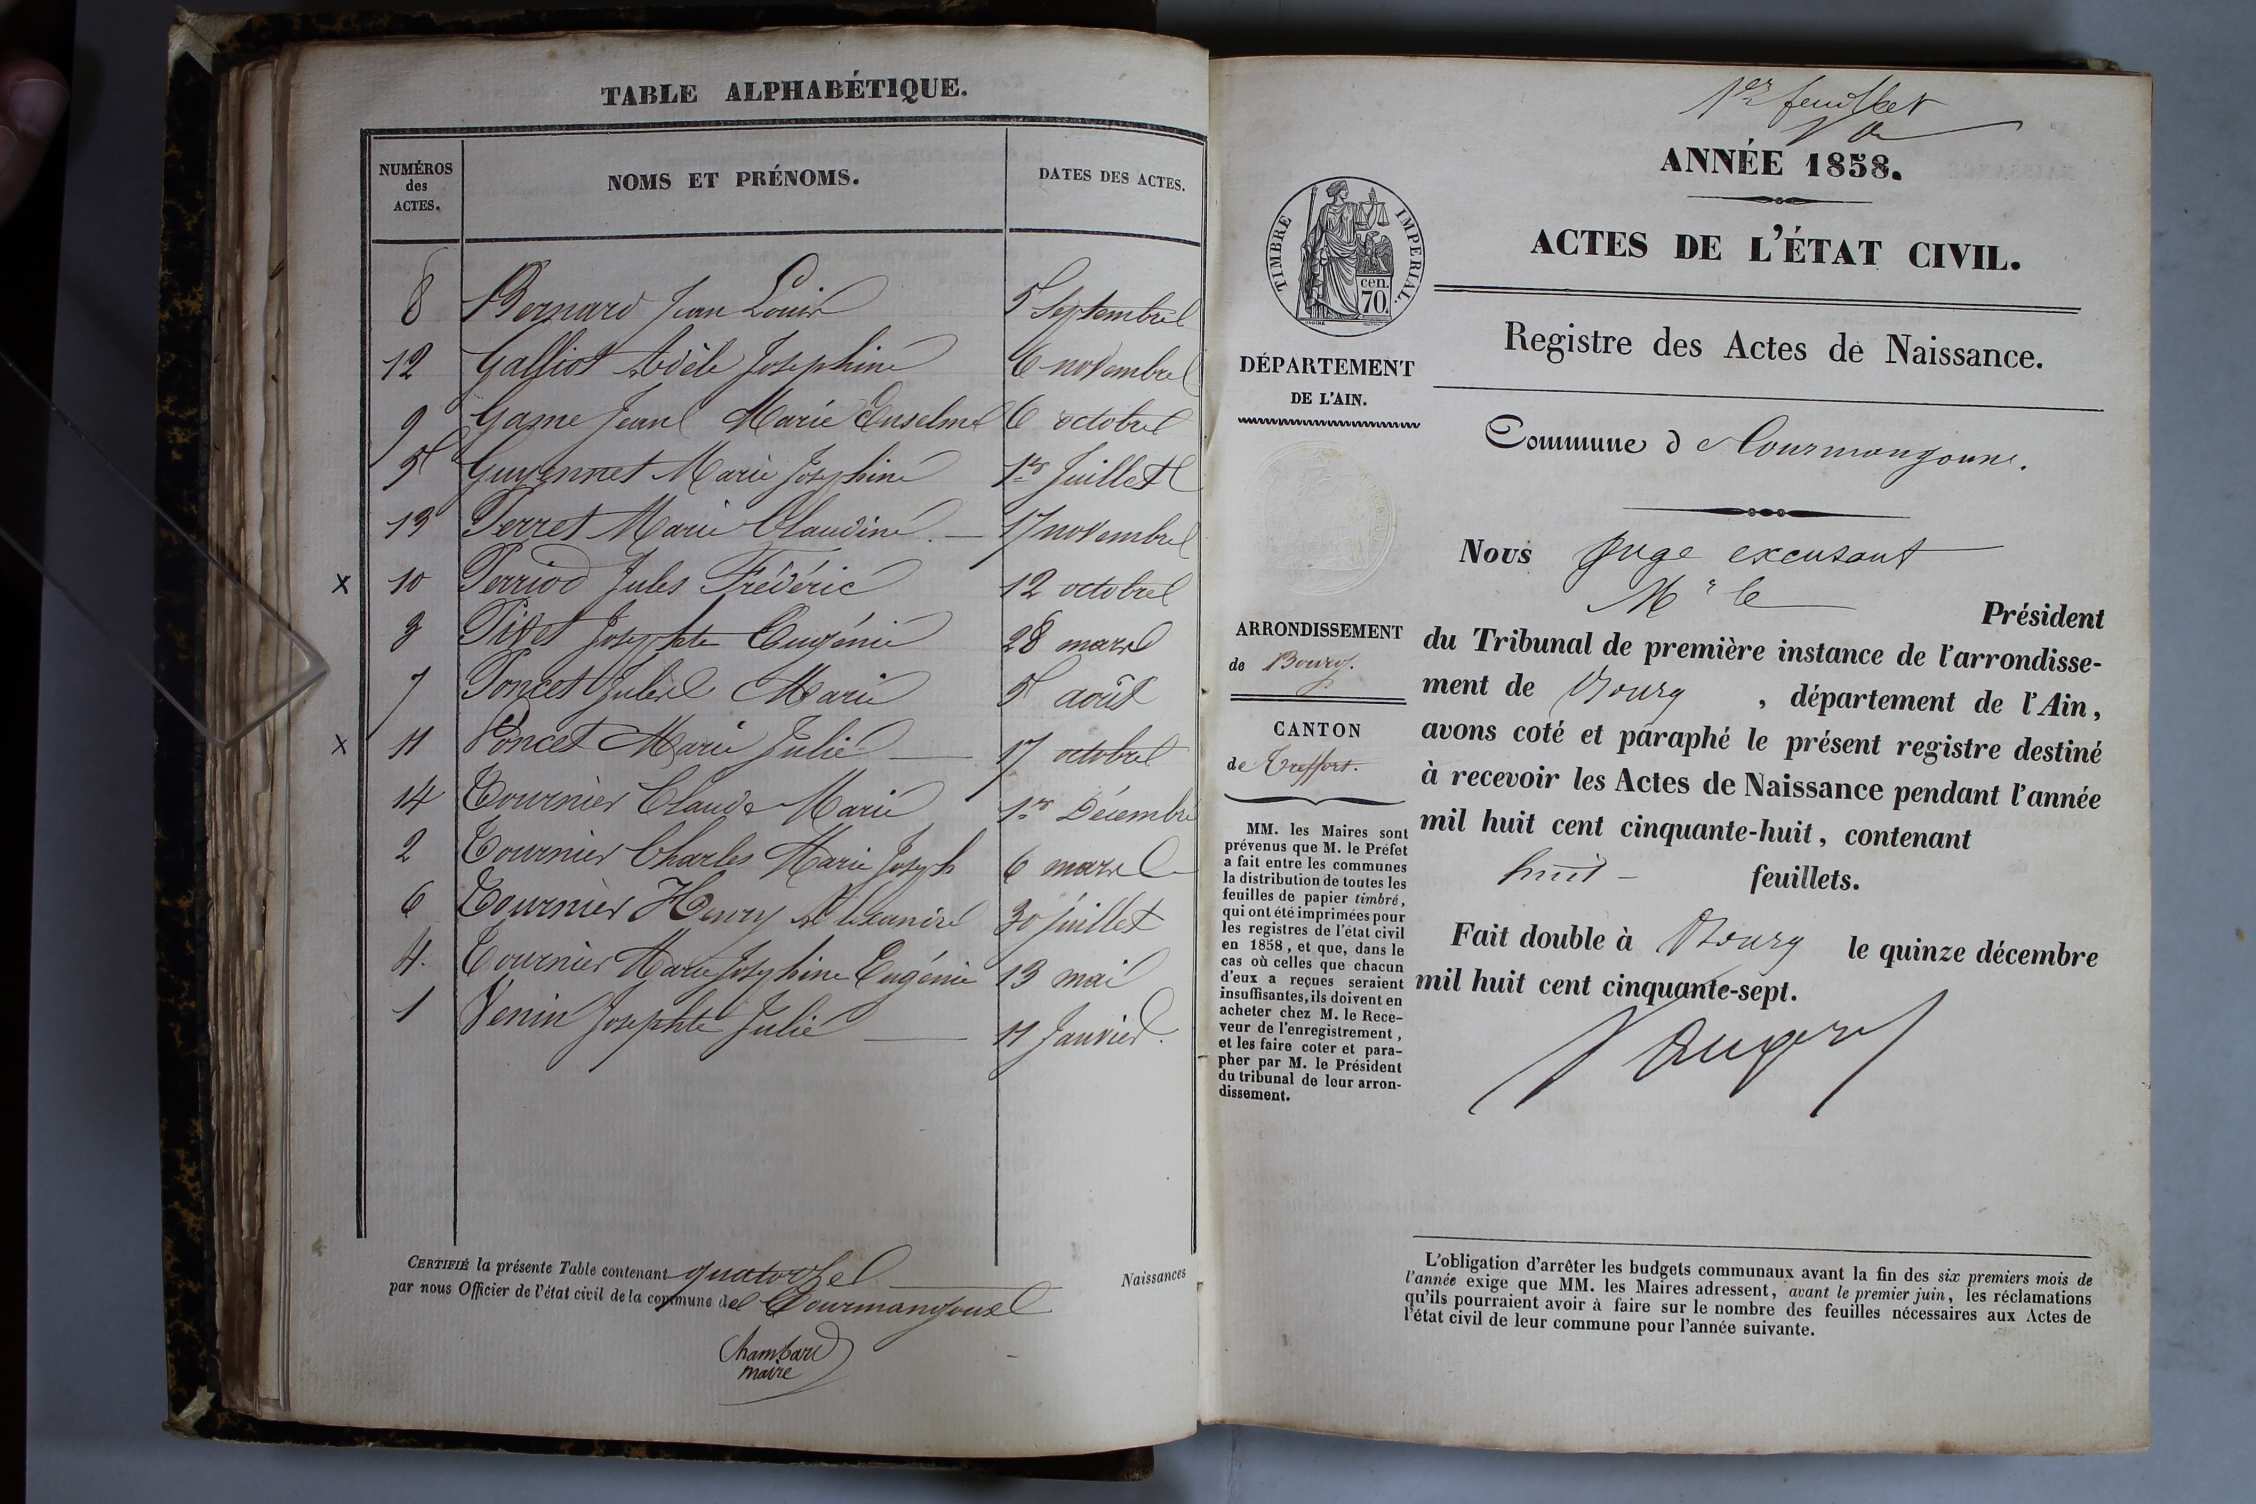 TABLE ALPHABÉTIQUE.
NUMÉROS des ACTES. NOMS ET PRÉNOMS. DATES DES ACTES.
8 Bernard Jean Louis 5 Septembre
12 Galliot Adèle Josephine 6 novembre
9 Game Jean Marie Enselme 6 octobre
5 Guyennet Marie Josephine 1er Juillet
13 Perret Marie Claudine. 17 novembre
x 10 Perriod Jules Frédéric 12 octobre
3 Pivet Josephte Eugénie 28 mars
7 Poncet Jules Marie 5 août
x 11 Poncet Marie Julie 17 octobre
14 Tournier Claude Marie 1er Décembre
2 Tournier Charles Marie Joseph 6 mars
6 Tournier Henry Alexandre 30 juillet
4. Tournier Marie Josephine Eugénie 13 mai
1 Venin Josephte Julie 11 Janvier.
CERTIFIÉ la présente Table contenant quatorze Naissances
par nous Officier de l'état civil de la commune de Courmangoux
Chambard
maire
1er feuillet
ANNÉE 1858.
ACTES DE L'ÉTAT CIVIL.
TIMBRE IMPÉRIAL.
cen.
70.
Registre des Actes de Naissance.
DÉPARTEMENT
DE L'AIN.
Commune de Courmangoux.
Nous juge excusant
Mr le Président
du Tribunal de première instance de l'arrondisse-
ment de Bourg, département de l'Ain,
avons coté et paraphé le présent registre destiné
à recevoir les Actes de Naissance pendant l'année
mil huit cent cinquante-huit, contenant
huit feuillets.
Fait double à Bourg le quinze décembre
mil huit cent cinquante-sept.
ARRONDISSEMENT
de Bourg.
CANTON
de Treffort.
MM. les Maires sont
prévenus que M. le Préfet
a fait entre les communes
la distribution de toutes les
feuilles de papier timbré,
qui ont été imprimées pour
les registres de l'état civil
en 1858, et que, dans le
cas où celles que chacun
d'eux a reçues seraient
insuffisantes, ils doivent en
acheter chez M. le Rece-
veur de l'enregistrement,
et les faire coter et para-
pher par M. le Président
du tribunal de leur arron-
dissement.
L'obligation d'arrêter les budgets communaux avant la fin des six premiers mois de
l'année exige que MM. les Maires adressent, avant le premier juin, les réclamations
qu'ils pourraient avoir à faire sur le nombre des feuilles nécessaires aux Actes de
l'état civil de leur commune pour l'année suivante.